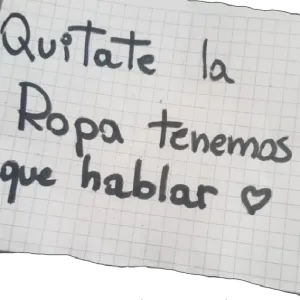 Quitate la
Ropa tenemos
que hablar ♡